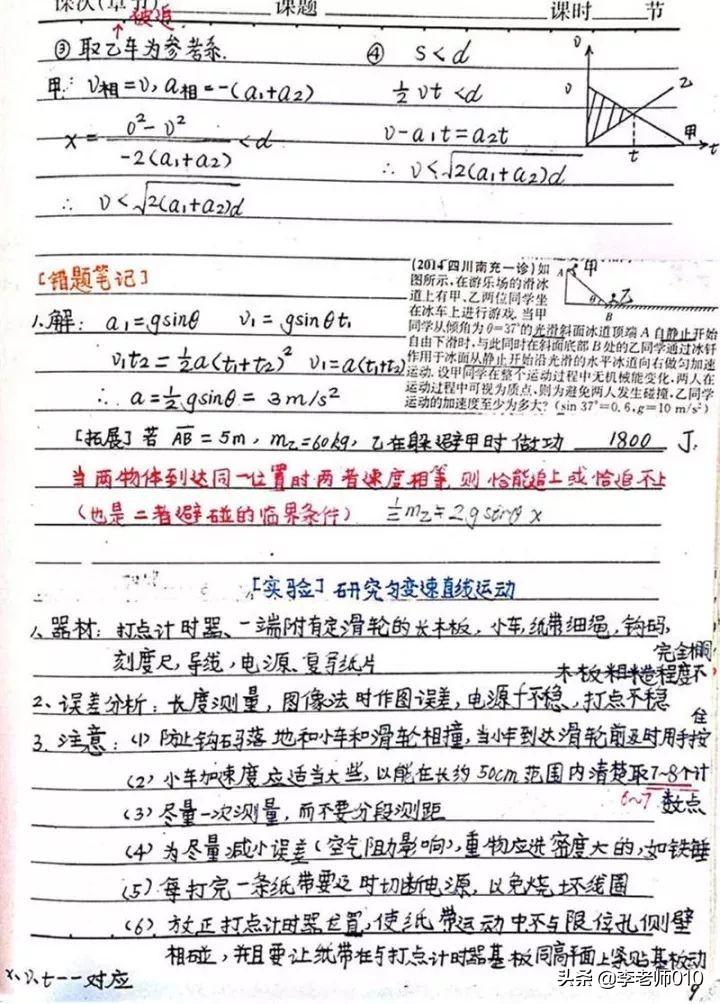 课次(章节) 课题 课时 节
被追
③ 取乙车为参考系.
甲: v相=v, a相=-(a₁+a₂)
x = (0²-v²)/(-2(a₁+a₂)) < d
∴ v<√2(a₁+a₂)d
④ s<d
½vt<d
v-a₁t=a₂t
∴ v<√2(a₁+a₂)d
v
v
乙
甲
t
t
[错题笔记]
1.解: a₁=gsinθ v₁=gsinθt₁
v₁t₂=½a(t₁+t₂)² v₁=a(t₁+t₂)
∴ a=½gsinθ=3m/s²
(2014四川南充一诊)如
图所示,在游乐场的滑冰
道上有甲、乙两位同学坐
在冰车上进行游戏.当甲
同学从倾角为θ=37°的光滑斜面冰道顶端A自静止开始
自由下滑时,与此同时在斜面底部B处的乙同学通过冰钎
作用于冰面从静止开始沿光滑的水平冰道向右做匀加速
运动.设甲同学在整个运动过程中无机械能变化,两人在
运动过程中可视为质点,则为避免两人发生碰撞,乙同学
运动的加速度至少为多大?(sin 37°=0.6,g=10 m/s²)
A 甲
乙
θ
B
[拓展]若AB=5m,m乙=60kg,乙在躲避甲时做功 1800 J.
当两物体到达同一位置时两者速度相等,则恰能追上或恰追不上
(也是二者避碰的临界条件) ½m乙
[实验]研究匀变速直线运动
1、器材:打点计时器、一端附有定滑轮的长木板,小车,纸带细绳,钩码,
刻度尺,导线,电源、复写纸片
完全相同
木板粗糙程度不
2、误差分析:长度测量,图像法时作图误差,电源f不稳,打点不稳
3、注意:(1)防止钩码落地和小车和滑轮相撞,当小车到达滑轮前及时用手按
住
(2)小车加速度应适当大些,以能在长约50cm范围内清楚取7~8个计
6~7 数点
(3)尽量一次测量,而不要分段测距
(4)为尽量减小误差(空气阻力影响),重物应选密度大的,如铁锤
(5)每打完一条纸带要及时切断电源,以免烧坏线圈
(6)放正打点计时器位置,使纸带运动中不与限位孔侧壁
相碰,并且要让纸带在与打点计时器基板同高平面上紧贴基板动
x、v、t一一对应
头条@李老师010
9